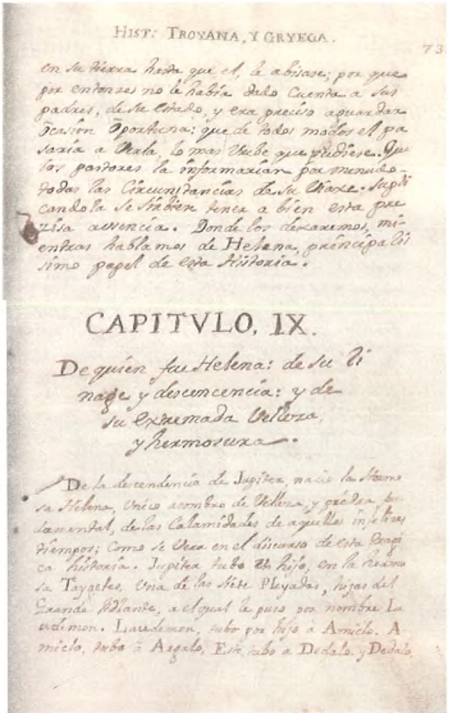 HIST: TROYANA, Y GRYEGA.
73
en su tierra hasta que el, le abisase; por que
por entonses no le habia dado Cuenta a sus
padres, de su estado, y era preciso aguardar
Ocasion Oportuna: que de todos modos el pa
saria a Verla lo mas Vrebe que pudiese. Que
los pastores la informarian por menudo
todas las Circunstancias de su Viaxe. Supli
candola se sirbiese tener a bien esta pre
zisa ausencia. Donde los dexaremos, mi
entras hablamos de Helena, principalis
simo papel de esta Historia.
CAPITVLO, IX.
De quien fue Helena: de su li
nage y descencencia: y de
su extremada Velleza,
y hermosura.
De la descendencia de Jupiter, nacio la Hermo
sa Helena, Unico asombro de Velleza, y piedra fun
damental, de las Calamidades de aquellos infelices
tiempos; Como se Vera en el discurso de esta Tragi
ca historia. Jupiter tubo un hijo, en la hermo
sa Taygetes, Una de las siete Pleyadas, hijas del
Grande Athlante, a el qual le puso por nombre La
cedemon. Lacedemon, tubo por hijo à Amiclo. A
miclo, tubo à Argalo. Este, tubo a Dedalo. y Dedalo,